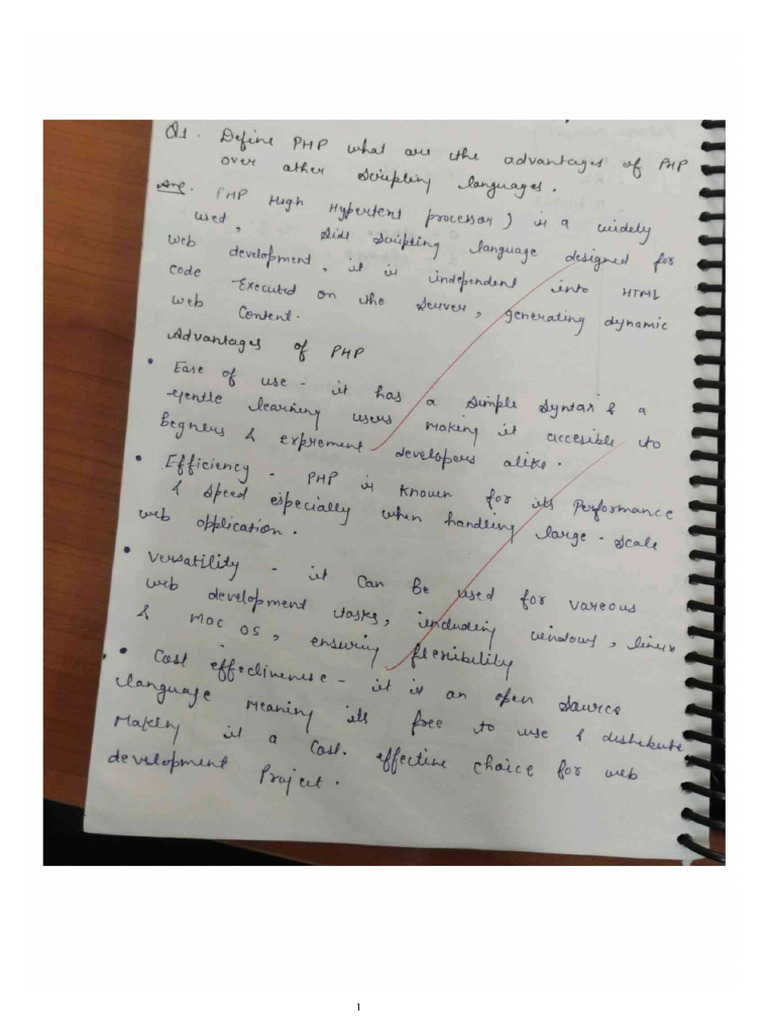 Q1. Define PHP what are the advantages of PHP
over other scripting languages.
Ans. PHP High Hypertent processor) is a widely
used, side scripting language designed for
web development, it is independent into HTML
code Executed on the server, generating dynamic
web content.
Advantages of PHP
• Ease of use - it has a simple syntax & a
gentle learning users making it accesible to
begners & exproment developers alike.
• Efficiency - PHP is known for its performance
& speed especially when handling large-scale
web application.
• Versatility - it can be used for vareous
web development tasks, including windows, linux
& Mac OS, ensuring flexibility
• Cost effectiveness - it is an open source
language meaning its free to use & distribute
Making it a cost. effective choice for web
development project.
1